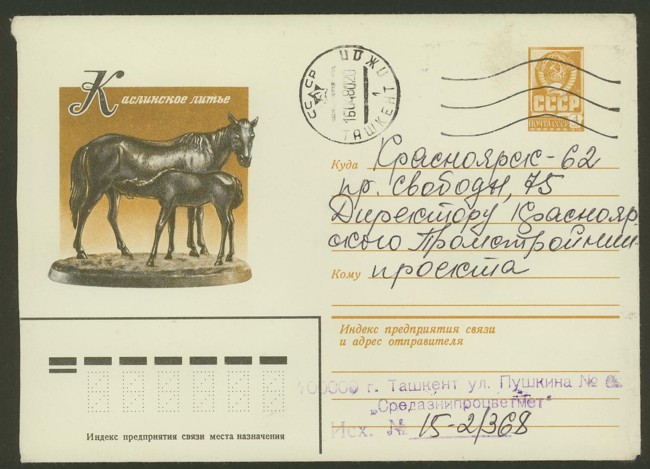 Каслинское литье
СССР
ТАШКЕНТ
1
16048020
СССР
ПОЧТА
Куда Красноярск-62
пр. Свободы, 75
Директору Краснояр-
ского Промстройнии-
Кому проекта
Индекс предприятия связи
и адрес отправителя
г. Ташкент ул. Пушкина №
„Средазнипроцветмет"
Исх. № 15-2/368
Индекс предприятия связи места назначения